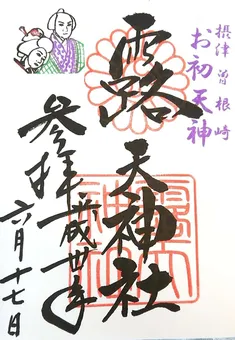 摂津 曽根崎
お初天神
露天神社
参拝 平成卅年
六月十七日